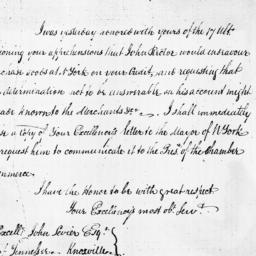 I was yesterday honored with yours of the 17 Ult.
ioning your apprehensions that John Rector would endeavour
chase goods at N York on your Credit, and requesting that
determination not to be answerable on his account might
ade known to the Merchants &c. I shall immediately
se a Copy of Your Excellency's letter to the Mayor of N York
request him to communicate it to the Presd. of the Chamber
ommerce.
I have the Honor to be with great respect
Your Excellency's most obt. Servt.
Excelly. John Sevier Esqr.
Tennessee. Knoxville